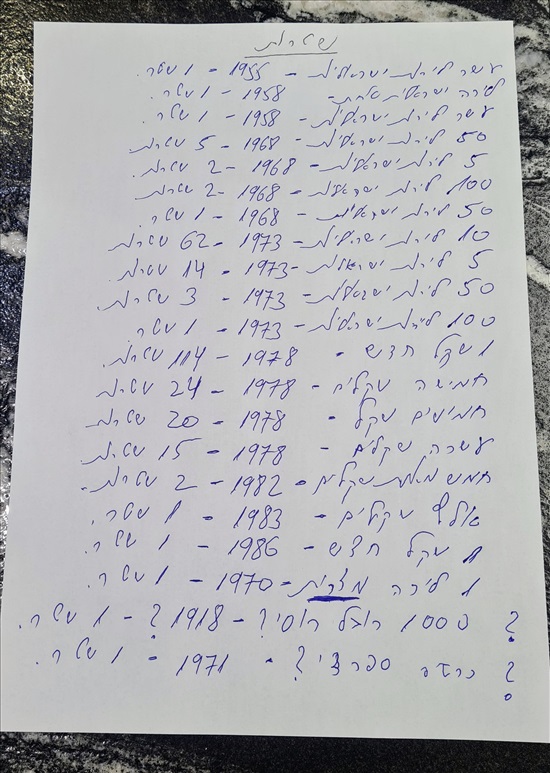 שטרות
עשר לירות ישראליות - 1955 - 1 שטר.
לירה ישראלית אחת - 1958 - 1 שטר.
עשר לירות ישראליות - 1958 - 1 שטר.
50 לירות ישראליות - 1968 - 5 שטרות.
5 לירות ישראליות - 1968 - 2 שטרות.
100 לירות ישראליות - 1968 - 2 שטרות
50 לירות ישראליות - 1968 - 1 שטר.
10 לירות ישראליות - 1973 - 62 שטרות
5 לירות ישראליות - 1973 - 14 שטרות.
50 לירות ישראליות - 1973 - 3 שטרות.
100 לירות ישראליות - 1973 - 1 שטר
1 שקל חדש - 1978 - 114 שטרות.
חמישה שקלים - 1978 - 24 שטרות
חמישים שקל - 1978 - 20 שטרות
עשרה שקלים - 1978 - 15 שטרות.
חמש מאות שקלים - 1982 - 2 שטרות.
אלף שקלים - 1983 - 1 שטר.
1 שקל חדש - 1986 - 1 שטר.
1 לירה מצרית - 1970 - 1 שטר.
? 1000 רובל רוסי? - 1918? - 1 שטר.
? ספרדי? - 1971 - 1 שטר.